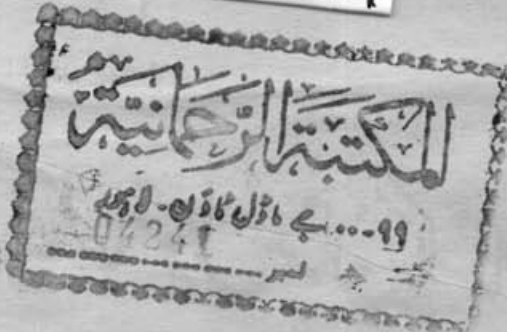 المکتبۃ الرحمانیۃ
۹۹...جے ماڈل ٹاؤن۔لاہور
04241
نمبر